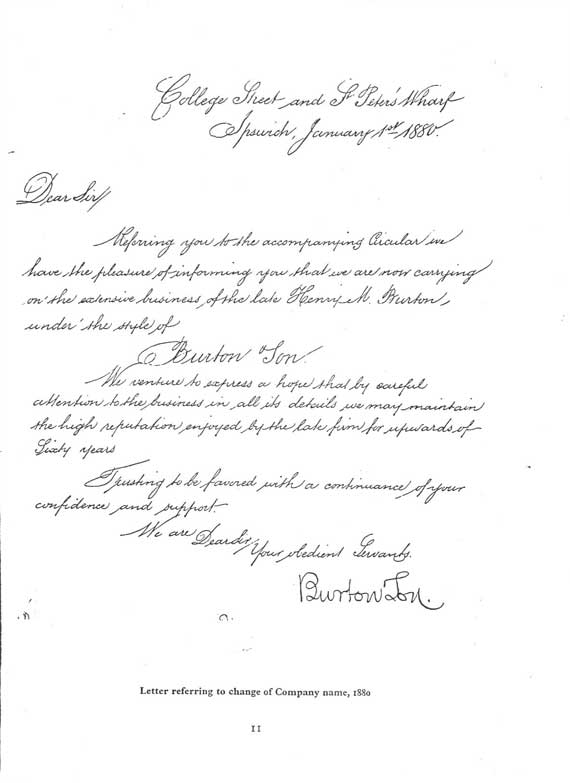 College Street and St Peter's Wharf
Ipswich, January 1st 1880.
Dear Sir
Referring you to the accompanying Circular we
have the pleasure of informing you that we are now carrying
on the extensive business of the late Henry M. Burton,
under the style of
Burton & Son.
We venture to express a hope that by careful
attention to the business in all its details we may maintain
the high reputation enjoyed by the late firm for upwards of
Sixty years
Trusting to be favored with a continuance of your
confidence and support.
We are Dear Sir,
Your obedient Servants.
Burton & Son.
Letter referring to change of Company name, 1880
11